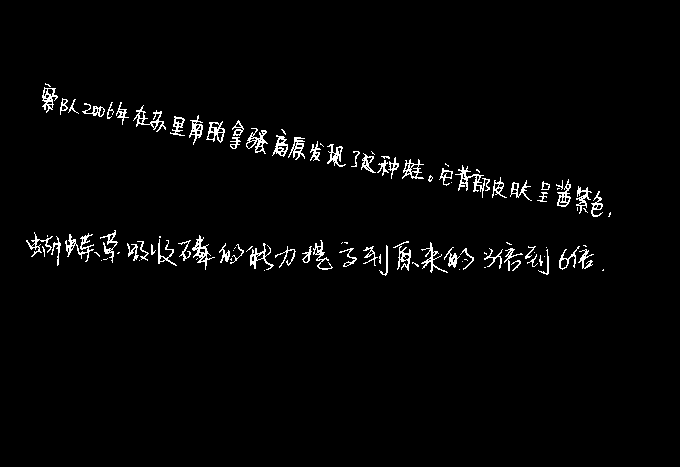 察队2006年在苏里南的拿骚高原发现了这种蛙。它背部皮肤呈酱紫色,
蝴蝶草吸收磷的能力提高到原来的3倍到6倍.